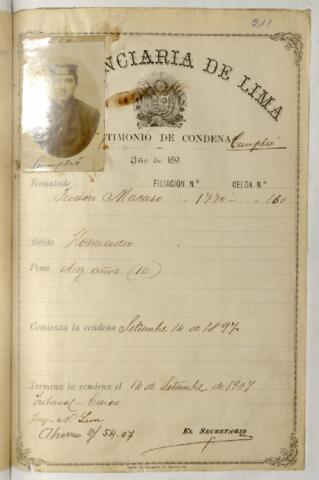 211
NCIARIA DE LIMA
TIMONIO DE CONDENA Cumplió
Cumplió
Año de 189
Rematado FILIACIÓN N.º CELDA N.º
Macaso 1770 160
Delito Homicidio
Pena diez años (10)
Comienza la condena Setiembre 14 de 1897
Termina la condena el 14 de Setiembre de 1907
Tribunal - Cuzco
Ahorro S/ 54.07
EL SECRETARIO